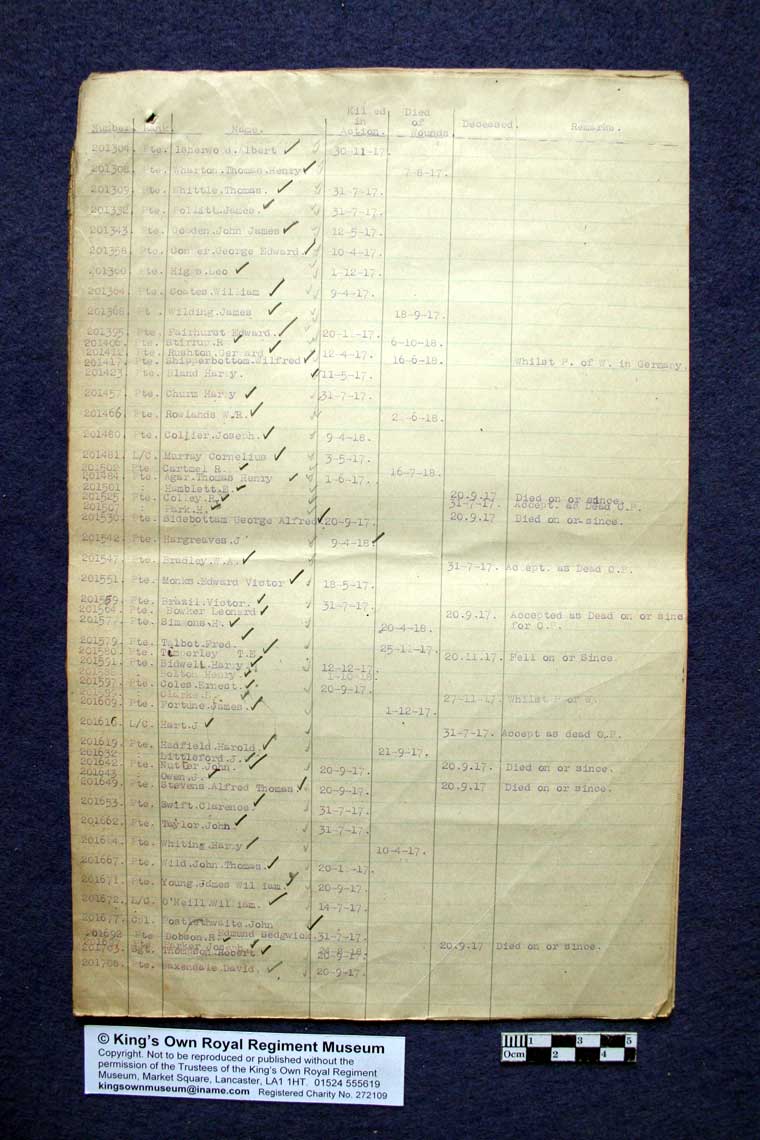 Number. Rank. Name. Killed in Action. Died of Wounds. Deceased. Remarks.
201304 Pte. Isherwood.Albert 30-11-17.
201308. Pte. Wharton.Thomas.Henry 7-8-17.
201309. Pte. Whittle.Thomas. 31-7-17.
201332. Pte. Pollitt.James. 31-7-17.
201343. Pte. Cowden.John James 12-5-17.
201358. Pte. George Edward. 10-4-17.
201360 Pte. Higgs.Leo 1-12-17.
201364 Pte. Coates.William 9-4-17.
201368. Pte. Wilding.James 18-9-17.
201395. Pte. Fairhurst Edward. 20-11-17.
201406. Pte. Stirrup.R 6-10-18.
201412. Pte. Rushton.Gerrard 12-4-17.
201417. Pte. Shipperbottom.Wilfred 16-6-18. Whilst P. of W. in Germany.
201423. Pte. Bland Harry. 11-5-17.
201457. Pte. Churm Harry 31-7-17.
201466 Pte. Rowlands W.R. -6-18.
201480. Pte. Collier.Joseph. 9-4-18.
201481. L/C. Murray Cornelius 3-5-17.
201502 Pte Cartmel R. 16-7-18.
201484. Pte. Agar.Thomas Henry 1-6-17.
201501 Hamblett.E. 20.9.17 Died on or since.
201525 Pte. Colley.R. 31-7-17. Accept. as Dead O.P.
201507 " Park.H. 20.9.17 Died on or since.
201530. Pte. Sidebottam George Alfred 20-9-17.
201542. Pte. Hargreaves.J 9-4-18.
201547. Pte. Bradley.W.A. 31-7-17. Accept. as Dead O.P.
201551. Pte. Monks.Edward Victor 18-5-17.
201559. Pte. Brazil.Victor. 31-7-17.
201564 Pte. Bowker Leonard 20.9.17. Accepted as Dead on or sinc
201577. Pte. Simmons.H. 20-4-18. for O.P.
201579. Pte. Talbot.Fred. 25-11-17.
201580. Pte. Timperley T.E. 20.11.17. Fell on or Since.
201591. Pte. Bidwell.Harry. 12-12-17.
Bolton.Henry. 1-10-18.
201597. Pte. Coles.Ernest. 20-9-17.
Clarke. 27-11-17. Whilst P of W.
201609. Pte. Fortune.James. 1-12-17.
201616 L/C. Hart.J 31-7-17. Accept as dead O.P.
201619. Pte. Hadfield.Harold. 21-9-17.
201632 Littleford.J. 20.9.17. Died on or since.
201642. Pte. Nutter.John. 20-9-17.
201643 " Owen.J. 20.9.17 Died on or since.
201649. Pte. Stevens.Alfred Thomas. 20-9-17.
201653. Pte. Swift.Clarence. 31-7-17.
201662. Pte. Taylor.John 31-7-17.
201664. Pte. Whiting.Harry 10-4-17.
201667. Pte. Wild.John.Thomas. 20-11-17.
201671. Pte. Young.James William. 20-9-17.
201672. L/C. O'Neill.William. 14-7-17.
201677. Cpl. Postlethwaite.John
Edmund Sedgwick. 31-7-17.
201692 Pte Dobson.R. 20.9.17 Died on or since.
Pte Parker Joseph 24-8-18.
201703. Sgt. Thompson.Robert 20-9-17.
201706. Pte. Baxendale.David. 20-9-17.
© King's Own Royal Regiment Museum
Copyright. Not to be reproduced or published without the
permission of the Trustees of the King's Own Royal Regiment
Museum, Market Square, Lancaster, LA1 1HT. 01524 555619
kingsownmuseum@iname.com Registered Charity No. 272109
1 3 5
0cm 2 4